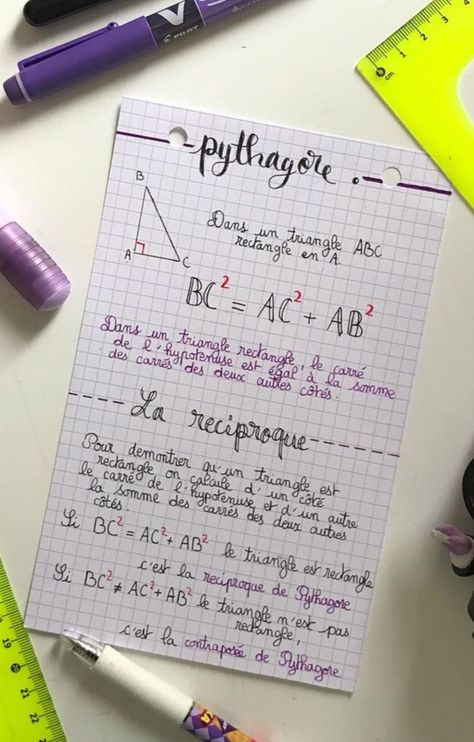 V
PILOT
pythagore.
B
A
C
Dans un triangle ABC
rectangle en A.
BC² = AC² + AB²
Dans un triangle rectangle, le carré
de l'hypoténuse est égal à la somme
des carrés des deux autres côtés.
La reciproque
Pour demontrer qu'un triangle est
rectangle on calcule d'un côté
le carré de l'hypoténuse et d'un autre
la somme des carrés des deux autres
côtés.
Si BC² = AC² + AB² le triangle est rectangle
c'est la reciproque de Pythagore
Si BC² ≠ AC² + AB² le triangle n'est pas
rectangle,
c'est la contraposée de Pythagore
cm 1 2 3 4 5
19 20 21 22